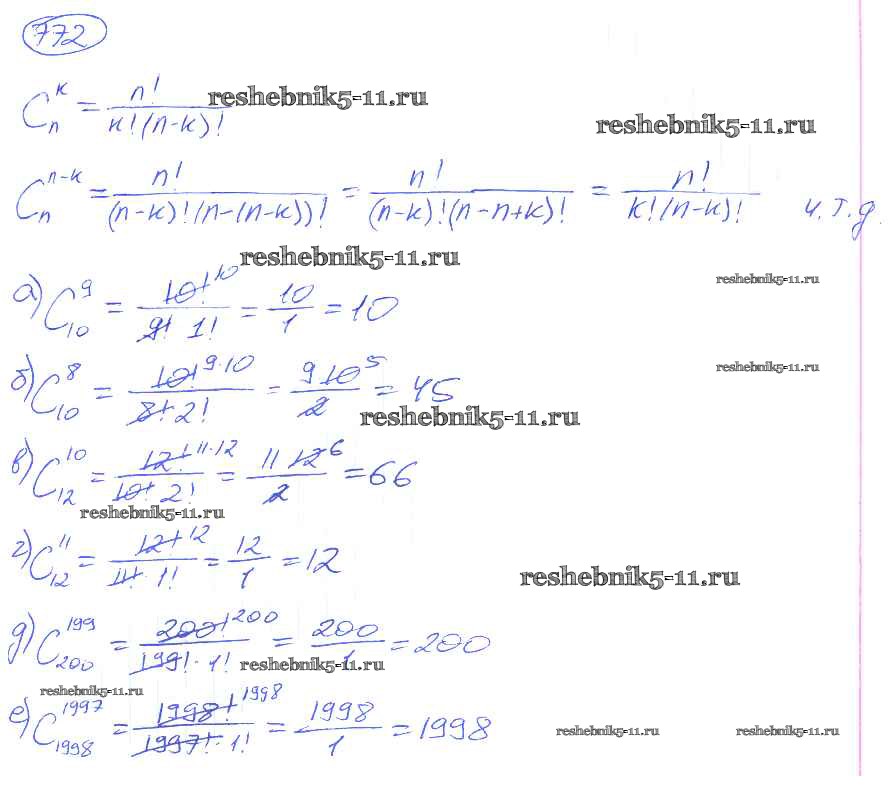 772
C_n^k = n! / k!(n-k)! reshebnik5-11.ru
reshebnik5-11.ru
C_n^{n-k} = n! / (n-k)!(n-(n-k))! = n! / (n-k)!(n-n+k)! = n! / k!(n-k)! ч.т.д.
reshebnik5-11.ru
reshebnik5-11.ru
а) C_10^9 = 10! 10 / 9! 1! = 10/1 = 10
б) C_10^8 = 10! 9·10 / 8! 2! = 9 10 5 / 2 = 45
reshebnik5-11.ru
reshebnik5-11.ru
в) C_12^10 = 12! 11·12 / 10! 2! = 11 12 6 / 2 = 66
reshebnik5-11.ru
г) C_12^11 = 12! 12 / 11! · 1! = 12/1 = 12
reshebnik5-11.ru
д) C_200^199 = 200! 200 / 199! · 1! = 200/1 = 200
reshebnik5-11.ru
reshebnik5-11.ru
е) C_1998^1997 = 1998! 1998 / 1997! · 1! = 1998/1 = 1998
reshebnik5-11.ru
reshebnik5-11.ru